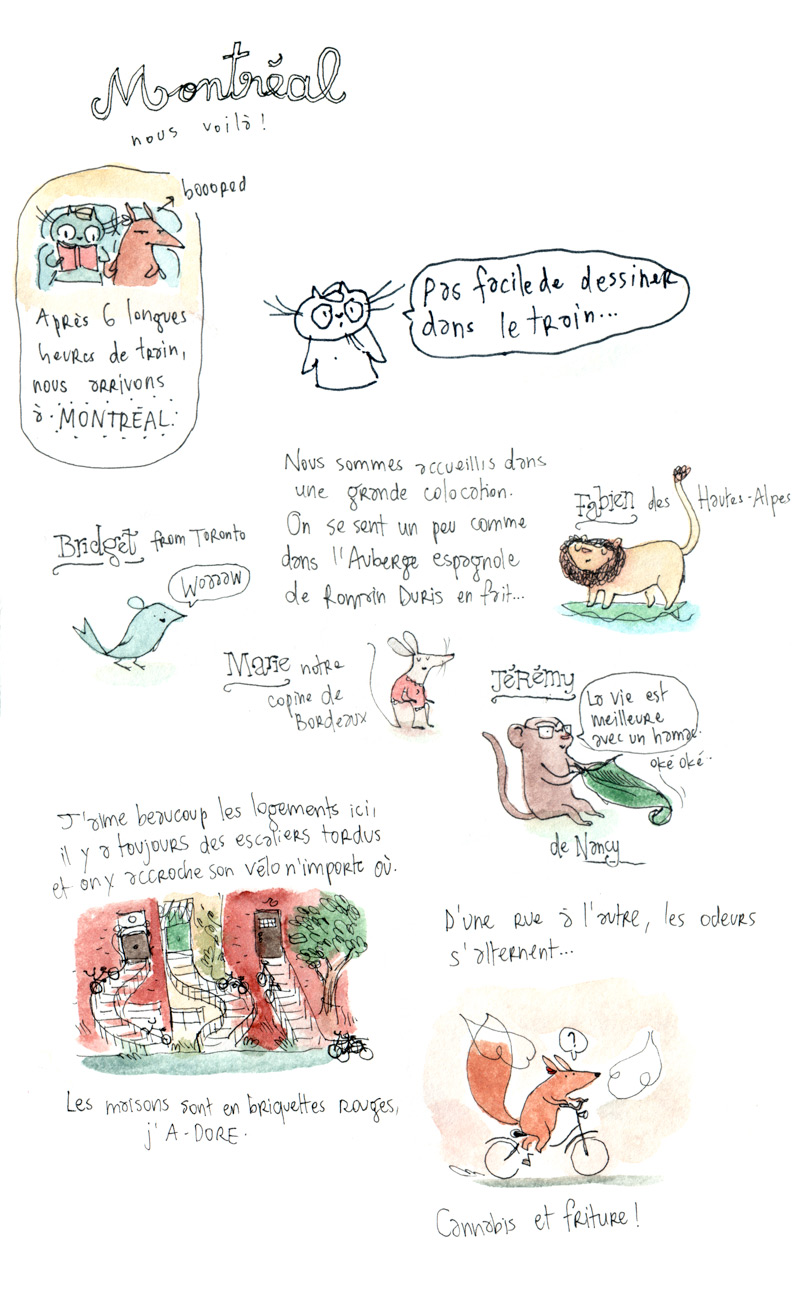 Montréal
nous voilà!
boooped
Après 6 longues
heures de train,
nous arrivons
à MONTRÉAL.
Pas facile de dessiner
dans le train...
Nous sommes accueillis dans
une grande colocation.
On se sent un peu comme
dans l'Auberge espagnole
de Romain Duris en fait...
Fabien des Hautes-Alpes
Bridget from Toronto
Marie notre
copine de
Bordeaux
Jérémy
La vie est
meilleure
avec un hamac.
oké oké..
de Nancy
J'aime beaucoup les logements ici,
il y a toujours des escaliers tordus
et on y accroche son vélo n'importe où.
Les maisons sont en briquettes rouges,
j'A-DORE.
D'une rue à l'autre, les odeurs
s'alternent...
?
Cannabis et friture!